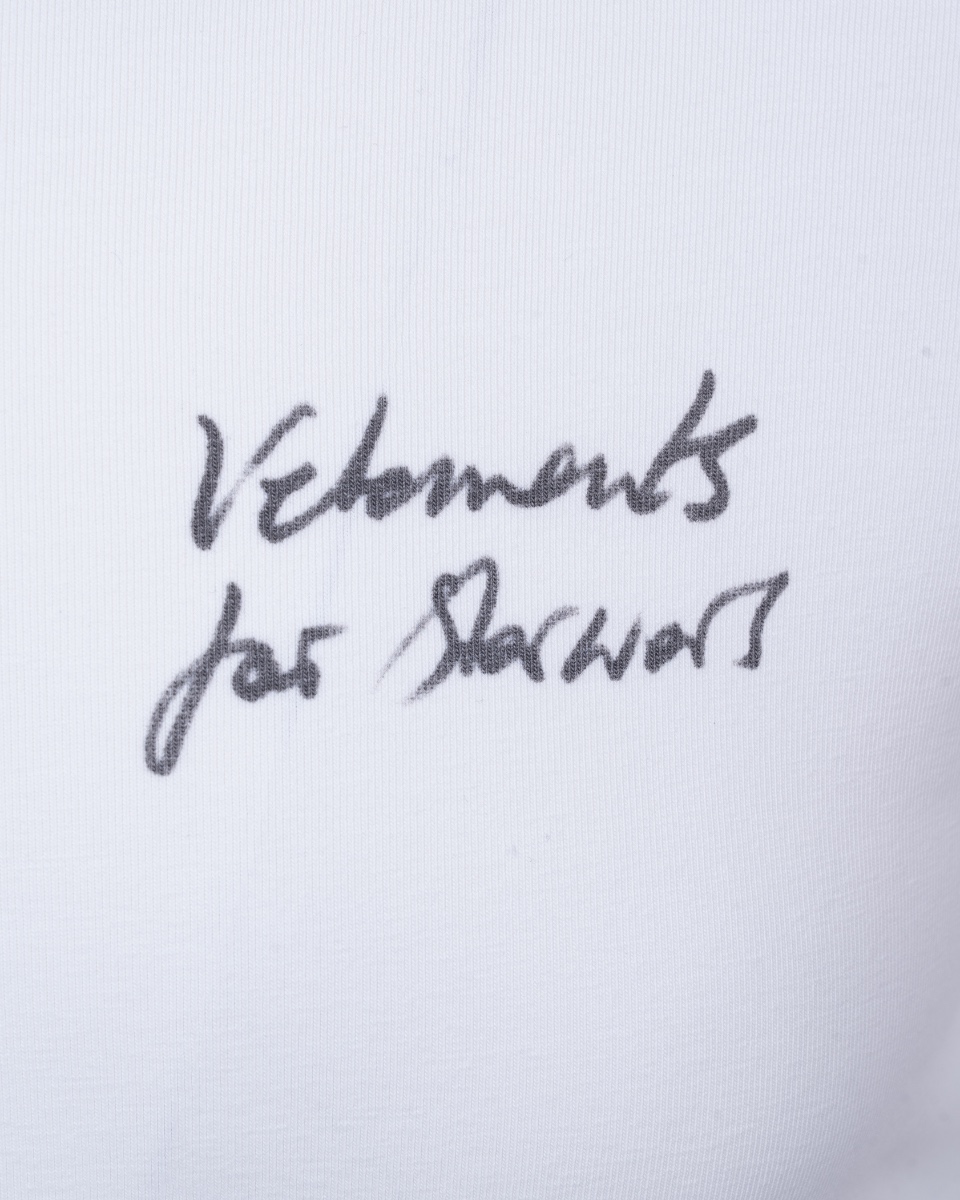 Vetements
for Starwars